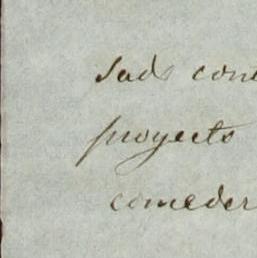 sads con
proyecto
comeder